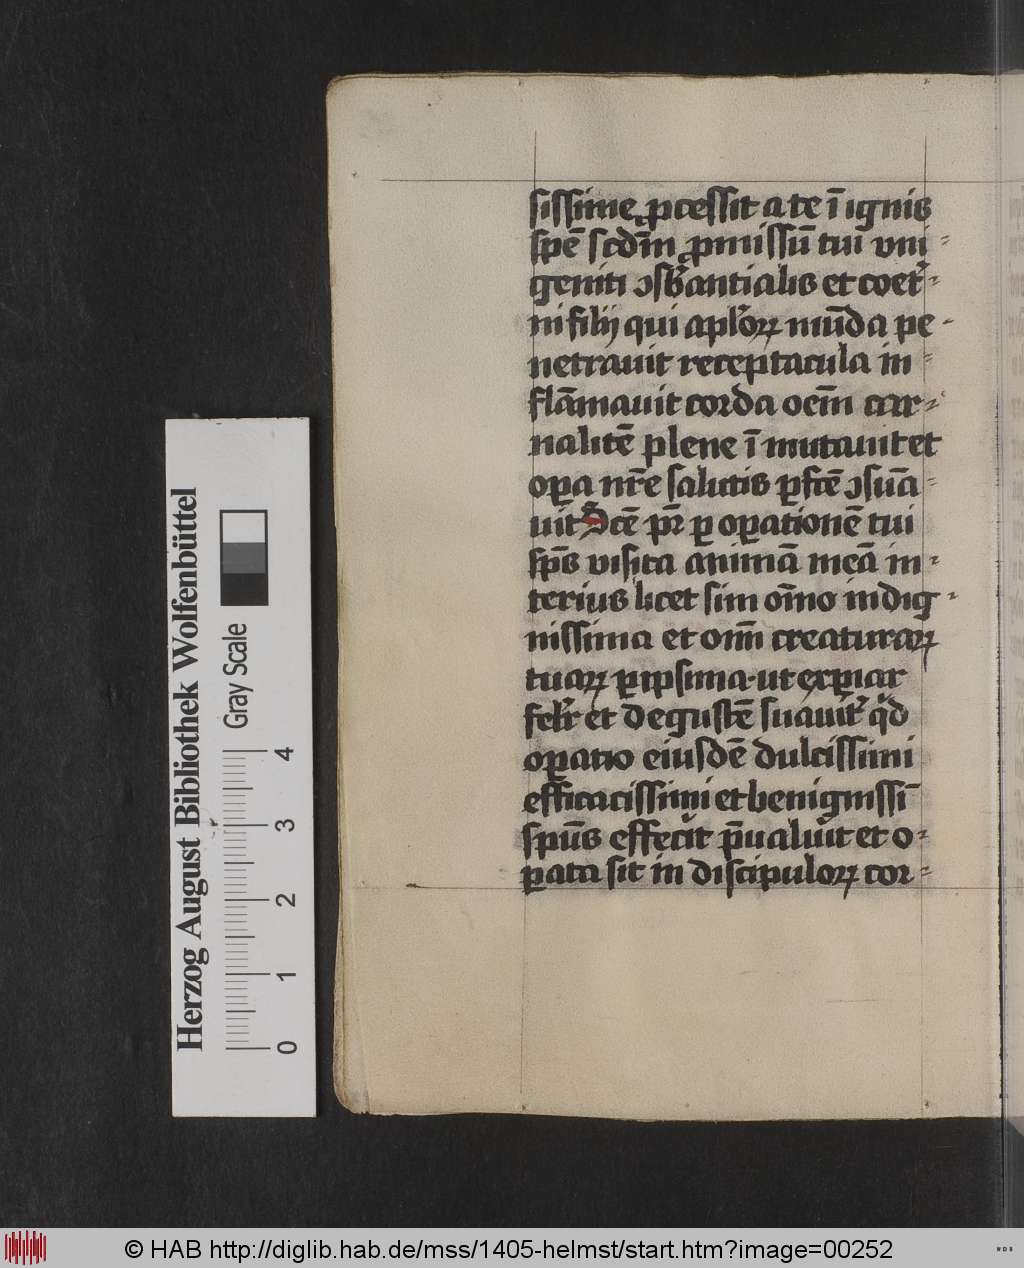 sissime ꝓcessit a te ī ignis
spē scdm̄ ꝓmissū tui vni⸗
geniti ↄsb̾antialis et coet̾⸗
ni filij qui apl̾oꝝ mūda pe-
netrauit receptacula in⸗
flāmauit corda oēm car⸗
nalitē plene ī mutauit et
oꝑa nr̄e salutis ꝑfcē ↄsuā⸗
uit Scē pr̄ ꝑ oꝑationē tui
sp̄s visita animā meā in⸗
terius licet sim om̄o indig⸗
nissima et om̄ creaturaꝝ
tuaꝝ ꝑipsima·ut exꝑiar
felr̄ et degustē suauit̾ qd̾
oꝑatio eiusdē dulcissimi
efficacissimi et benignissī
spūs effecit p̄ualuit et o⸗
ꝑata sit in discipuloꝝ cor⸗
Herzog August Bibliothek Wolfenbüttel
Gray Scale
0 1 2 3 4
© HAB http://diglib.hab.de/mss/1405-helmst/start.htm?image=00252